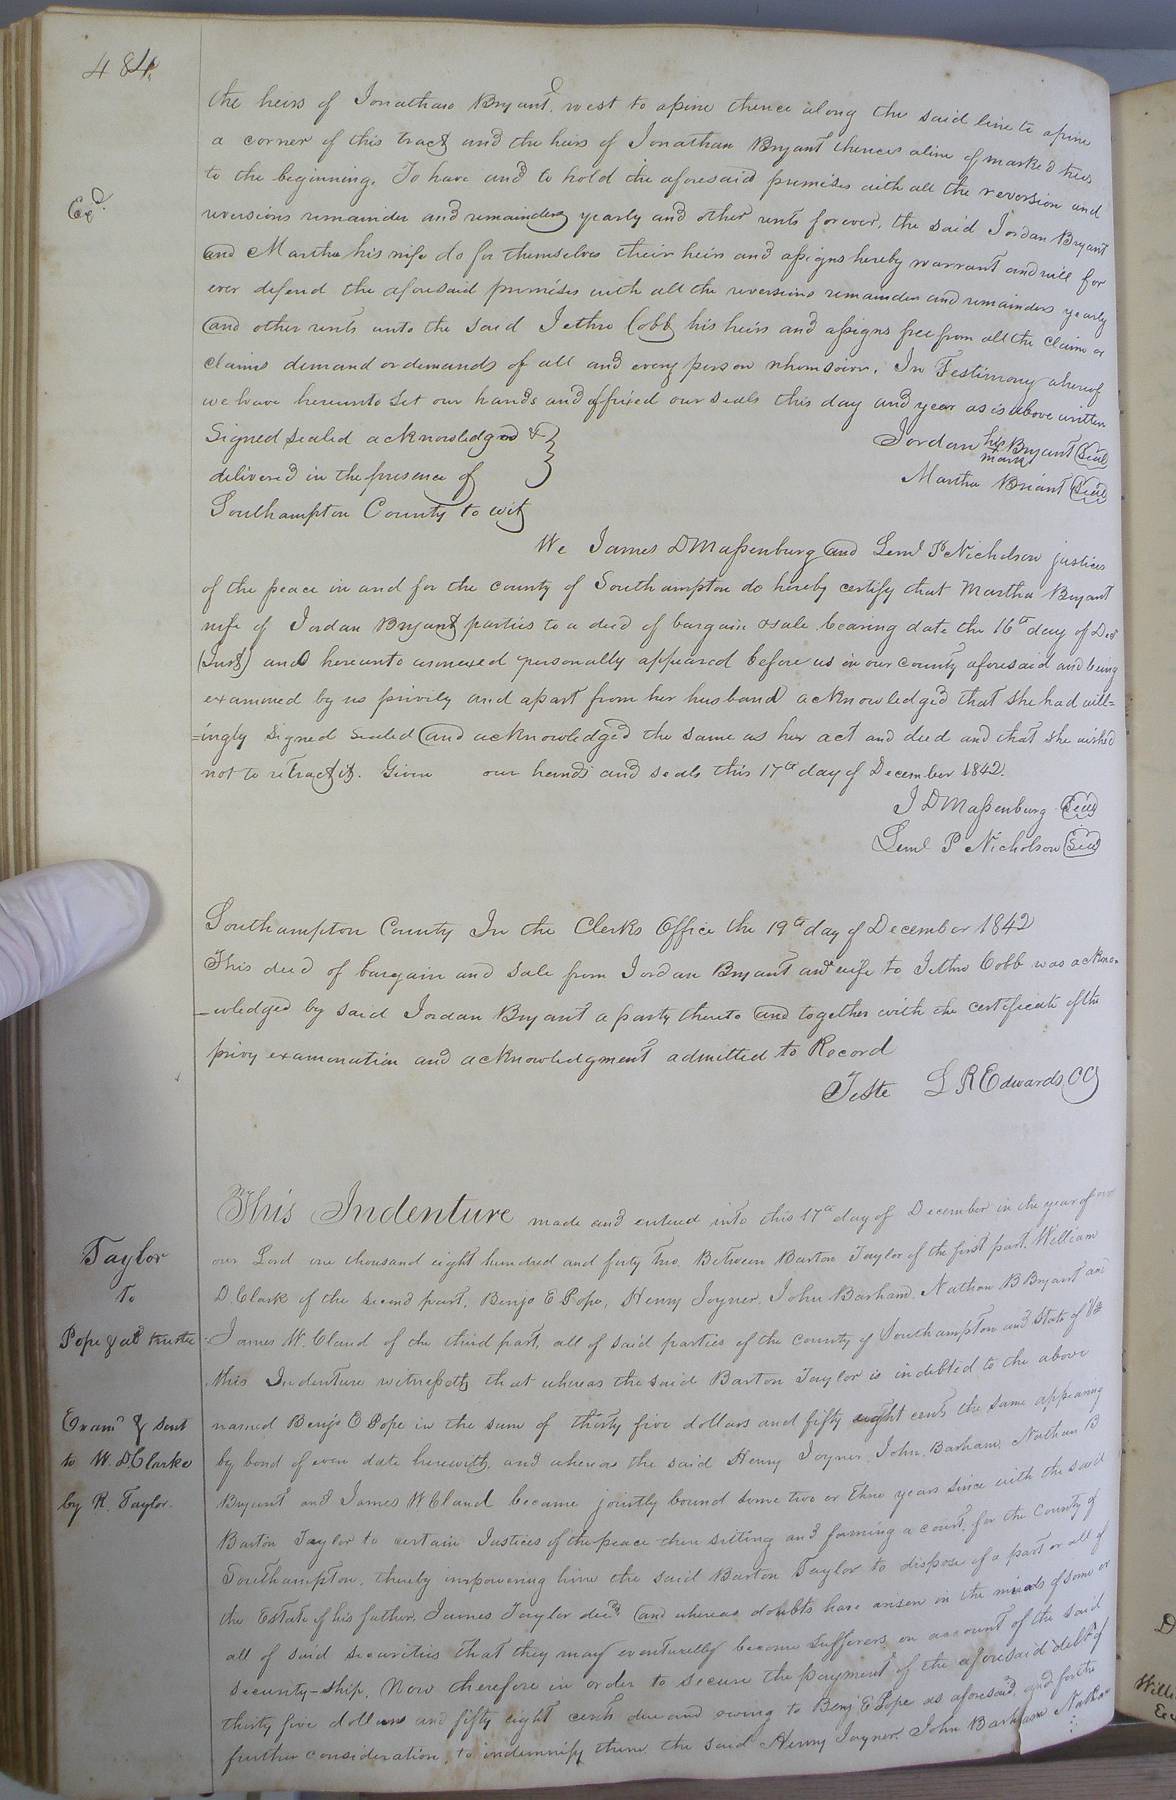 484
the heirs of Jonathan Bryant decd west to a pine thence along the said line to a pine
a corner of this tract and the heirs of Jonathan Bryant thence a line of marked trees
to the beginning. To have and to hold the aforesaid premises with all the reversion and
Exd.
reversions remainder and remainders yearly and other rents forever, the said Jordan Bryant
and Martha his wife do for themselves their heirs and assigns hereby warrant and will for
ever defend the aforesaid premises with all the reversions remainder and remainders yearly
and other rents unto the said Jethro Cobb his heirs and assigns free from all the claim or
claims demand or demands of all and every person whomsoever. In Testimony whereof
we have hereunto set our hands and affixed our seals this day and year as is above written
Signed sealed acknowledged &
Jordan his mark Bryant Seal
delivered in the presence of
Martha Briant Seal
Southampton County to wit
We James D Massenburg and Leml P Nicholson justices
of the peace in and for the county of Southampton do hereby certify that Martha Bryant
wife of Jordan Bryant parties to a deed of bargain & sale bearing date the 16th day of Decr
(Inst) and hereunto annexed personally appeared before us in our county aforesaid and being
examined by us privily and apart from her husband acknowledged that she had will=
=ingly signed sealed and acknowledged the same as her act and deed and that she wished
not to retract it. Given our hands and seals this 17th day of December 1842.
J D Massenburg Seal
Leml P Nicholson Seal
Southampton County In the Clerks Office the 19th day of December 1842
This deed of bargain and sale from Jordan Bryant and wife to Jethro Cobb was ackno-
-wledged by said Jordan Bryant a party thereto and together with the certificate of the
privy examination and acknowledgment admitted to Record
Teste L R Edwards CC
This Indenture made and entered into this 17th day of December in the year of our
Taylor
our Lord one thousand eight hundred and forty two. Between Barton Taylor of the first part. William
To
D. Clark of the second part, Benjo E Pope, Henry Joyner, John Barham, Nathan B Bryant and
Pope & als trustee
James W. Claud of the third part, all of said parties of the county of Southampton and State of Va
this Indenture witnesseth that whereas the said Barton Taylor is indebted to the above
Examd & sent
named Benjo E Pope in the sum of thirty five dollars and fifty eight cents the same appearing
to W. D. Clarke
by bond of even date herewith, and whereas the said Henry Joyner, John Barham, Nathan B
by R. Taylor.
Bryant and James W Claud became jointly bound some two or three years since with the said
Barton Taylor to certain Justices of the peace then sitting and forming a court, for the County of
Southampton, thereby impowering him the said Barton Taylor to dispose of a part or all of
the Estate of his father, James Taylor decd and whereas doubts have arisen in the minds of some or
all of said securities that they may eventually become sufferers on account of the said
security-ship. Now therefore in order to secure the payment of the aforesaid debt of
thirty five dollars and fifty eight cents due and owing to Benj E Pope as aforesaid, and for the
further consideration, to indemnify them the said Henry Joyner, John Barham Nathan